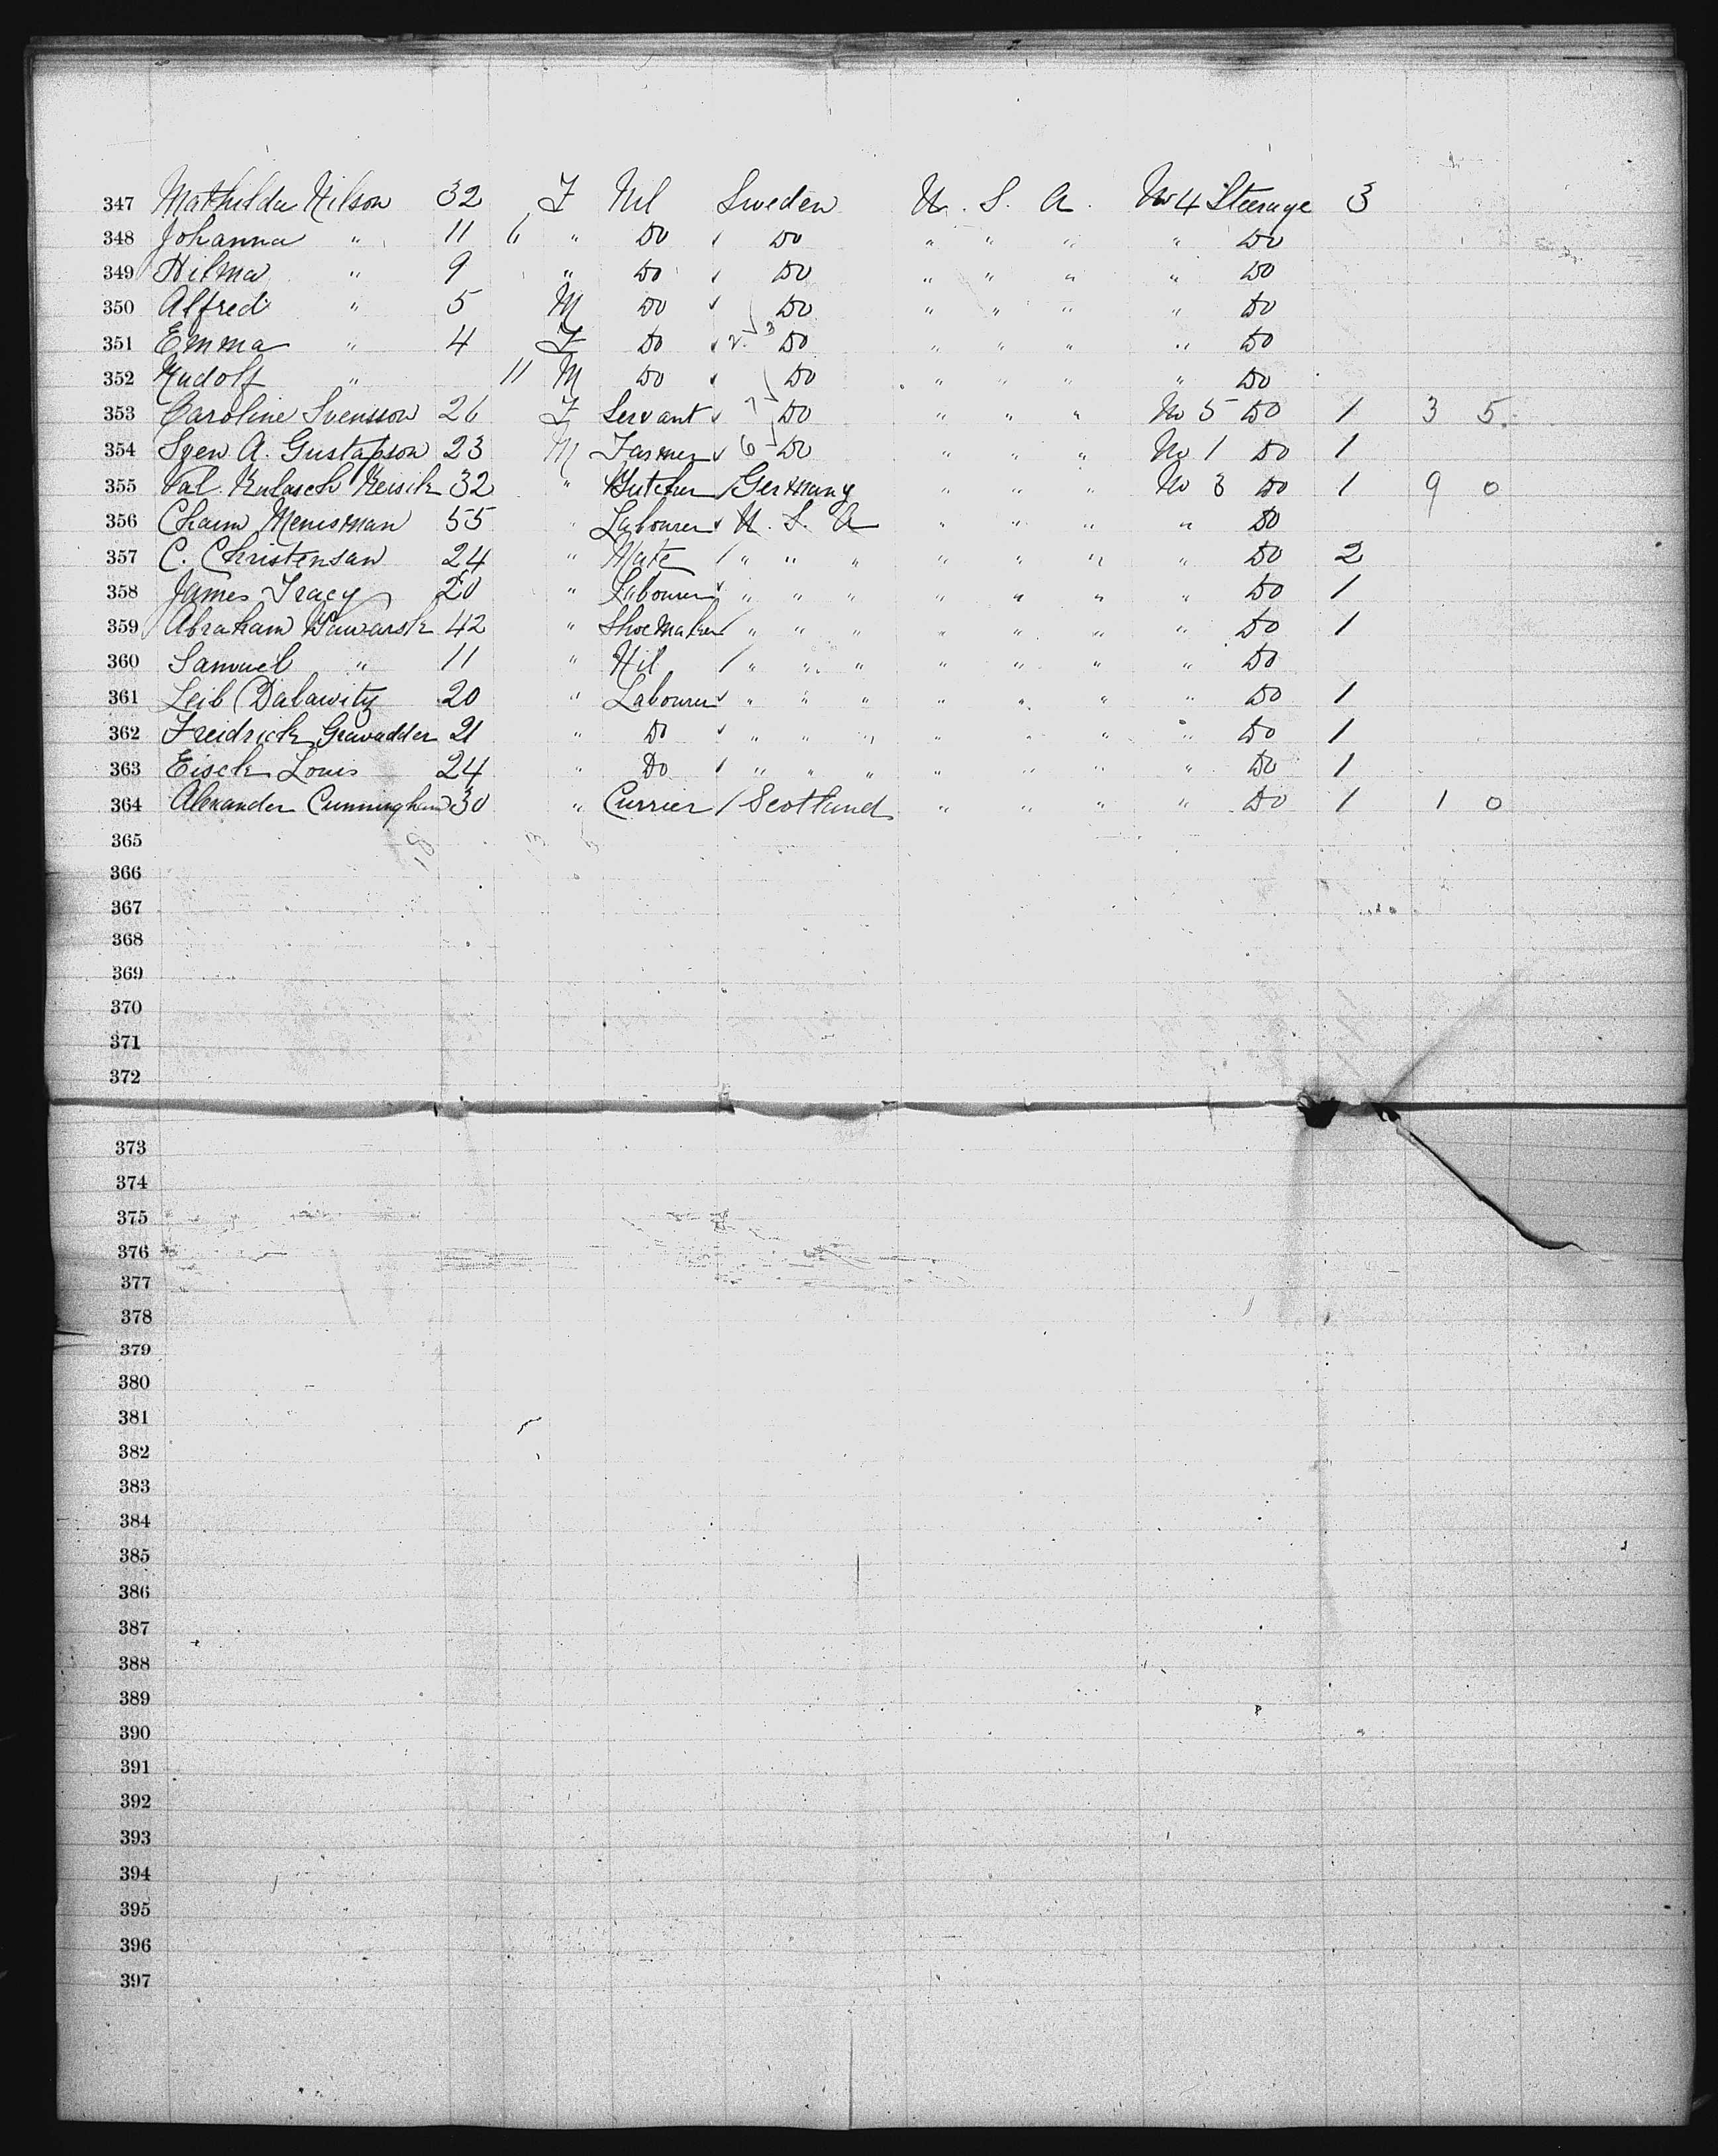 347 Mathilda Nilson 32 F Nil Sweden U. S. A. No 4 Steerage 3
348 Johanna " 11 6 " Do Do " " " " Do
349 Hilma " 9 " Do Do " " " " Do
350 Alfred " 5 M Do Do " " " " Do
351 Emma " 4 F Do Do " " " " Do
352 Rudolf " 11 M Do Do " " " " Do
353 Caroline Svensson 26 F Servant Do " " " No 5 Do 1 3 5
354 Sven A. Gustafson 23 M Farmer Do " " " No 1 Do 1
355 Val. 32 " Butcher Germany " " " No 3 Do 1 9 0
356 Chaim Menisman 55 " Labourer U. S. A " " " " Do
357 C. Christensan 24 " Mate " " " " " " " Do 2
358 James Tracy 20 " Labourer " " " " " " " Do 1
359 Abraham 42 " Shoemaker " " " " " " " Do 1
360 Samuel " 11 " Nil " " " " " " " Do
361 Leib Dalawitz 20 " Labourer " " " " " " " Do 1
362 Freidrick 21 " Do " " " " " " " Do 1
363 Louis 24 " Do " " " " " " " Do 1
364 Alexander Cunningham 30 " Currier Scotland " " " " Do 1 1 0
365
366
367
368
369
370
371
372
373
374
375
376
377
378
379
380
381
382
383
384
385
386
387
388
389
390
391
392
393
394
395
396
397